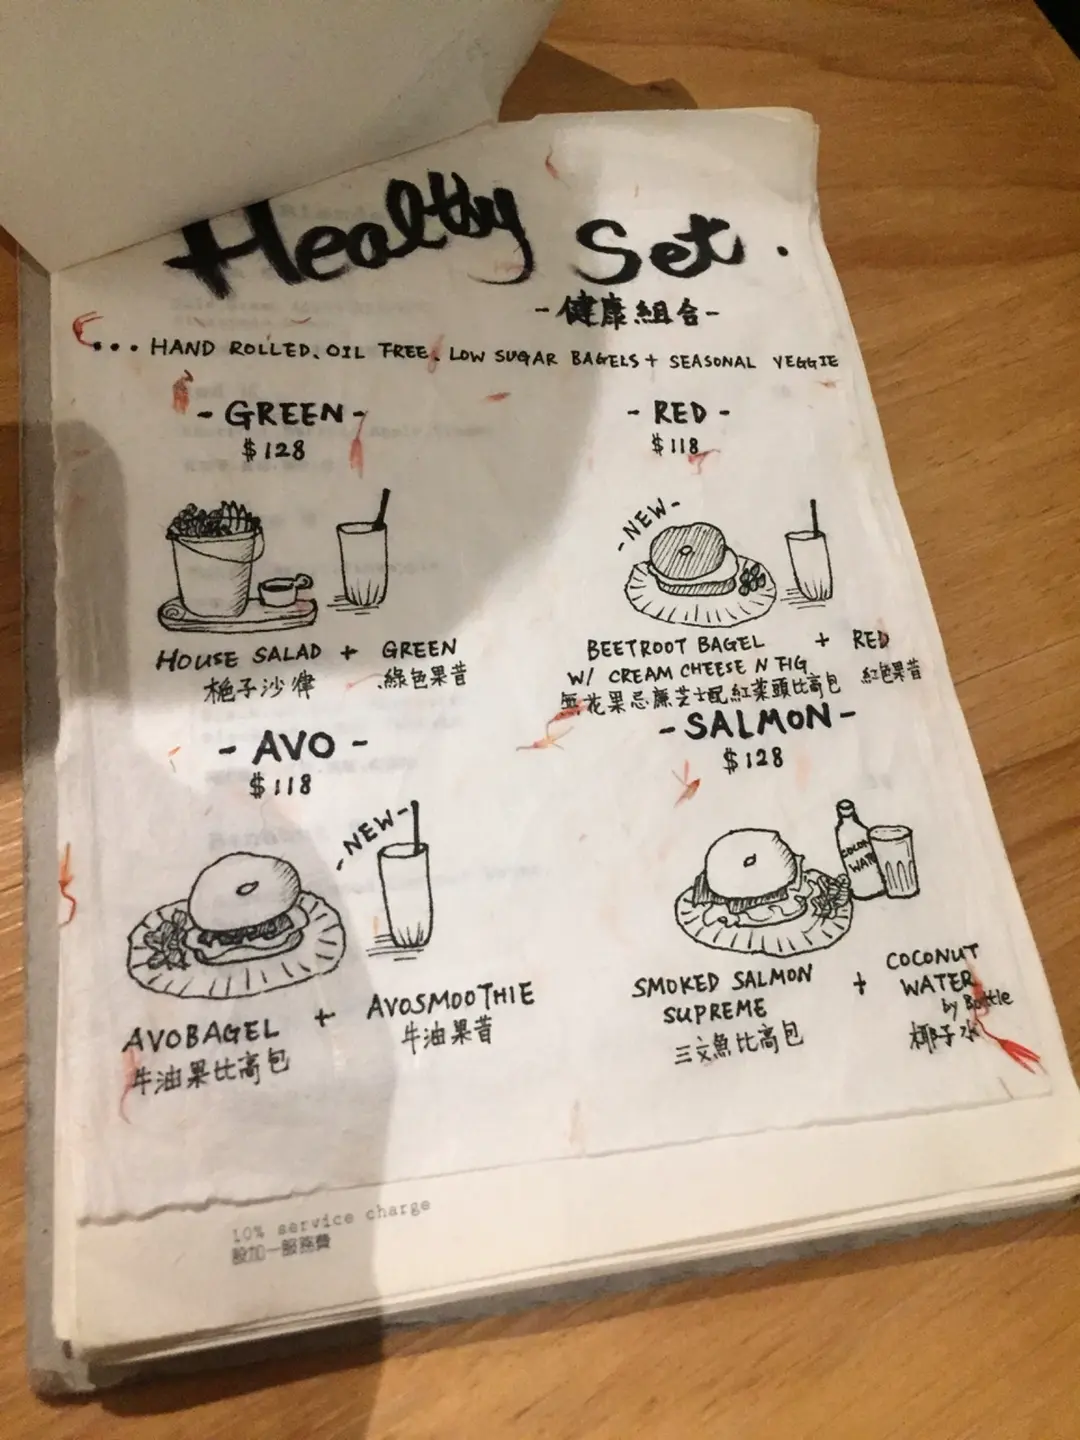 Healthy Set.
-健康組合-
... HAND ROLLED, OIL FREE, LOW SUGAR BAGELS + SEASONAL VEGGIE
-GREEN-
$128
HOUSE SALAD + GREEN
梔子沙律 綠色果昔
-RED-
$118
-NEW-
BEETROOT BAGEL + RED
W/ CREAM CHEESE N FIG
無花果忌廉芝士配紅菜頭比高包 紅色果昔
-AVO-
$118
-NEW-
AVOBAGEL + AVOSMOOTHIE
牛油果比高包 牛油果昔
-SALMON-
$128
SMOKED SALMON + COCONUT
SUPREME WATER
by Bottle
三文魚比高包 椰子水
10% service charge
設加一服務費